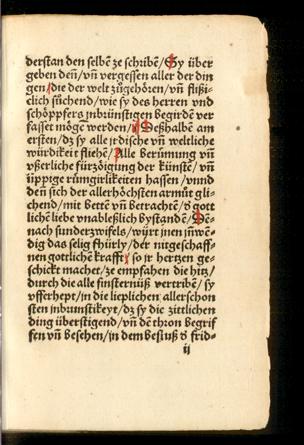 derstan den selbē ze schribē/ Sy über
geben deñ/ vñ vergessen aller der din
gen/ die der welt zůgehören/ vñ flißi-
clich sůchend/ wie sy des herren vnd
schöpffers inbrünstigen begirdē ver
fasset möge werden/ Deßhalbē am
ersten/ dz sy alle jrdische vñ weltliche
würdikeit fliehē/ Alle berümung vñ
vßerliche fürzöigung der künstē/ vñ
üppige rümgirlikeiten hassen/ vnnd
deñ sich der allerhöchsten armůt gli-
chend/ mit bettē vñ betrachtē/ d gott
lichē liebe vnableßlich bystandē/ Dē-
nach sunder zwifels/ würt jnen jñwen-
dig das selig fhürly/ der nitgeschaff-
nen gottlichē krafft/ so jr hertzen ge-
schickt machet/ ze empfahen die hitz/
durch die alle finsternüß vertribē/ sy
vfferhept/ jn die lieplichen allerschon
sten inbrunstikeyt/ dz sy die zittlichen
ding überstigend/ vñ dē thron begrif
fen vñ besehen/ jn dem besluß d frid-
ij